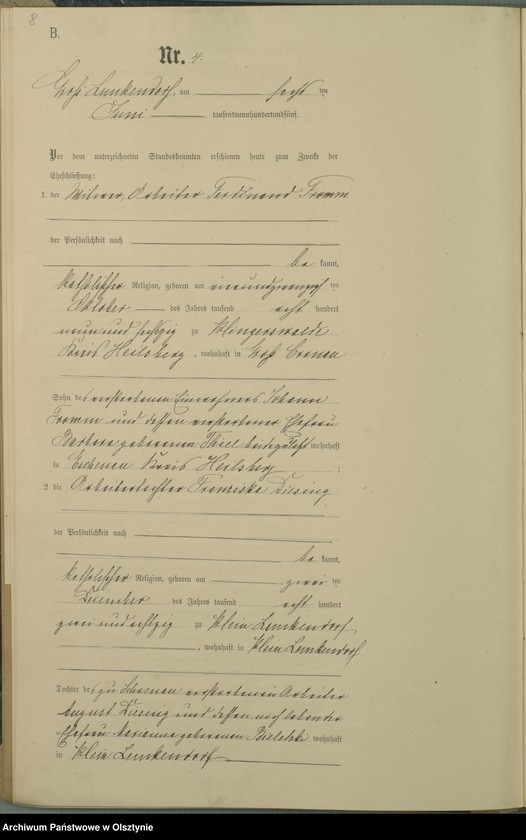 8
B.
Nr. 4.
Groß Lemkendorf, am sechs ten
Juni tausendneunhundertundfünf.
Vor dem unterzeichneten Standesbeamten erschienen heute zum Zwecke der
Eheschließung:
1. der Witwer, Arbeiter Ferdinand Fromm
der Persönlichkeit nach
be kannt,
katholischer Religion, geboren am einundzwanzig ten
Oktober des Jahres tausend acht hundert
neun und sechzig zu Klingerswalde
Kreis Heilsberg, wohnhaft in Groß Cronau
Sohn des verstorbenen Einwohners Johann
Fromm und dessen verstorbener Ehefrau
Barbara geborenen Thiel beide zuletzt wohnhaft
in Kreis Heilsberg ;
2. die Arbeitertochter Franziska Diesing
der Persönlichkeit nach
be kannt,
katholischer Religion, geboren am zwei ten
des Jahres tausend acht hundert
zwei und achtzig zu Klein Lemkendorf
, wohnhaft in Klein Lemkendorf
Tochter des zu verstorbenen Arbeiter
August Diesing und dessen noch lebender
Ehefrau Marianna geborenen wohnhaft
in Klein Lemkendorf
Archiwum Państwowe w Olsztynie